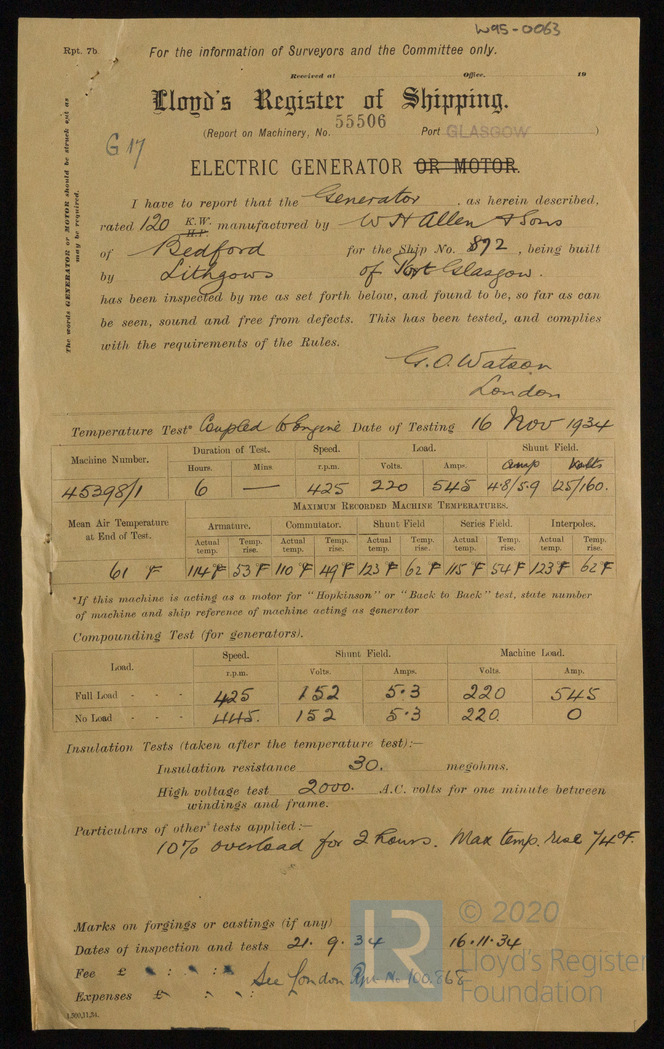 W95-0063
Rpt. 7b.
For the information of Surveyors and the Committee only.
Received at Office. 19
Lloyd's Register of Shipping.
(Report on Machinery, No. 55506 Port GLASGOW )
G 17
ELECTRIC GENERATOR OR MOTOR.
The words GENERATOR or MOTOR should be struck out as may be required.
I have to report that the Generator , as herein described,
rated 120 K.W. H.P. manufactvred by W H Allen & Sons
of Bedford for the Ship No. 892 , being built
by Lithgows of Port Glasgow.
has been inspected by me as set forth below, and found to be, so far as can
be seen, sound and free from defects. This has been tested, and complies
with the requirements of the Rules.
G. O. Watson
London
Temperature Test* Coupled to Engine Date of Testing 16 Nov 1934
Machine Number. Duration of Test. Speed. Load. Shunt Field.
Hours. Mins. r.p.m. Volts. Amps. amp volts
45398/1 6 — 425 220 545 4.8/5.9 125/160.
Mean Air Temperature at End of Test. MAXIMUM RECORDED MACHINE TEMPERATURES.
Armature. Commutator. Shunt Field Series Field. Interpoles.
Actual temp. Temp. rise. Actual temp. Temp. rise. Actual temp. Temp. rise. Actual temp. Temp. rise. Actual temp. Temp. rise.
61 °F 114°F 53°F 110°F 49°F 123°F 62°F 115°F 54°F 123°F 62°F
*If this machine is acting as a motor for "Hopkinson" or "Back to Back" test, state number
of machine and ship reference of machine acting as generator
Compounding Test (for generators).
Load. Speed. Shunt Field. Machine Load.
r.p.m. Volts. Amps. Volts. Amp.
Full Load - - - 425 152 5.3 220 545
No Load - - - 445. 152 5.3 220. 0
Insulation Tests (taken after the temperature test):—
Insulation resistance 30. megohms.
High voltage test 2000. A.C. volts for one minute between
windings and frame.
Particulars of other tests applied:—
10% overload for 2 hours. Max temp. rise 74°F.
Marks on forgings or castings (if any)
Dates of inspection and tests 21. 9. 34 16.11.34
Fee £ : :
See London Rpt No 100.868
Expenses £ : :
1,500,11,34.
LR
© 2020
Lloyd's Register
Foundation